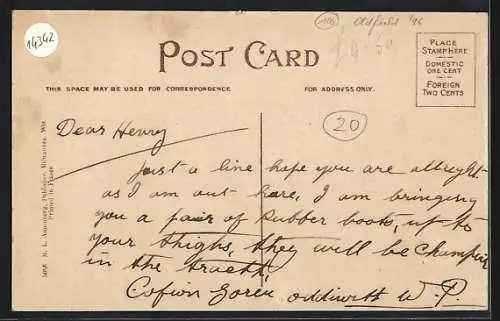 14342
118
Oldfield '96
£4.50
POST CARD
PLACE
STAMP HERE
DOMESTIC
ONE CENT
FOREIGN
TWO CENTS
THIS SPACE MAY BE USED FOR CORRESPONDENCE
FOR ADDRESS ONLY.
20
Dear Henry
Just a line hope you are allright
as I am out here, I am bringing
you a pair of rubber boots, up to
your thighs, they will be champion
in the
Cofion goreu oddiwrth W. P.
Publisher, Milwaukee, Wis.
Printed in